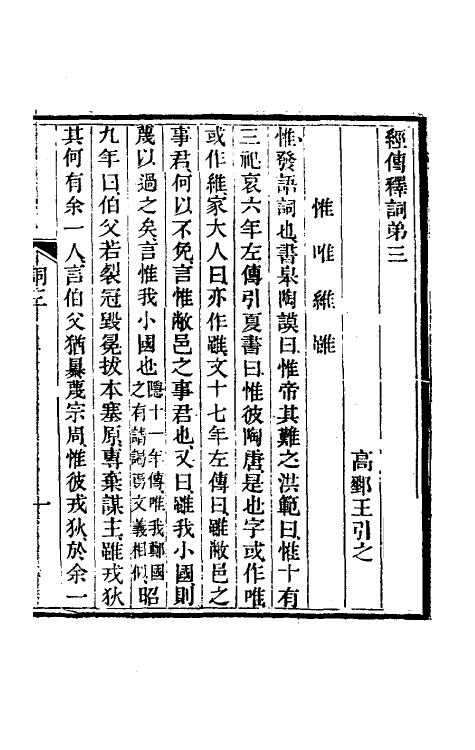 經傳釋詞弟三
高郵王引之
惟唯維雖
惟發語詞也書皋陶謨曰惟帝其難之洪範曰惟十有
三祀哀六年左傳引夏書曰惟彼陶唐是也字或作唯
或作維家大人曰亦作雖文十七年左傳曰雖敝邑之
事君何以不免言惟敝邑之事君也又曰雖我小國則
蔑以過之矣言惟我小國也隱十一年傳唯我鄭國之有請謁焉文義相似昭
九年曰伯父若裂冠毀冕拔本塞原專棄謀主雖戎狄
其何有余一人言伯父猶㬥蔑宗周惟彼戎狄於余一